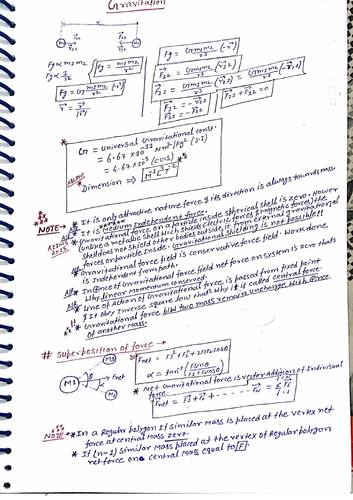 Gravitation
r
m1
m2
Fg ∝ m1m2
Fg ∝ 1/r²
Fg = m1m2/r²
Fg = G m1m2/r²
G = Universal Gravitational const.
= 6.67 × 10⁻¹¹ Nm²/kg² (S.I)
= 6.67 × 10⁻⁸ (CGS)
Dimension ⇒ M⁻¹L³T⁻²
NOTE → * It is only attractive nature force & its direction is always towards mass.
* It is Medium Independent force.
* Gravitational force on a particle inside spherical shell is zero. However
unlike a metallic shell which shields electric forces (magnetic forces) the
shell does not shield other bodies outside it from external gravitational
forces on particle inside. Gravitational shielding is not possible!!
* Gravitational force field is conservative force field. Work done
is Independent from path.
* In of Gravitational force field net force on system is zero that's
why linear momentum conserved.
* Line of Action of Gravitational force is passed from fixed point
& it obey Inverse square law that's why it is called central force.
* Gravitational force b/w two mass remain unchange with
of another mass.
# Superposition of force →
M1
M2
M3
F1
F2
Fnet
Fnet = √F1²+F2²+2F1F2cosθ
* Net Gravitational force is vector Addition of Individual
force
NOTE → * In a Regular polygon If similar Mass is placed at the vertex net
force at central Mass zero.
* If (n-1) Similar Mass placed at the vertex of Regular polygon
net force on central Mass equal to F.